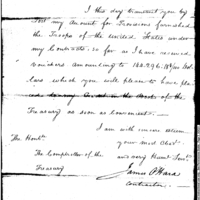 I this day transmit you by
Post my Account for Provisions furnished
the Troops of the United States under
my Contracts so far as I have received
vouchers amounting to Dol-
lars which you will please to have
on the Books of the
Treasury as soon as convenient —
I am with much esteem
The Honble your most Obed't
The Comptroller of the and very Humb Serv't
Treasury James O'Hara
Contractor